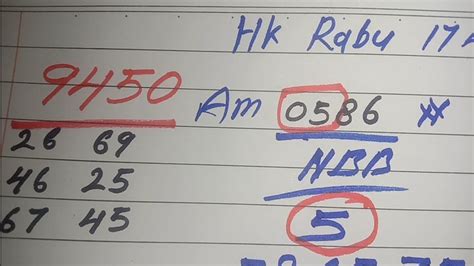 Hk Rabu 17
9450
Am 0586
26 69
NBB
46 25
5
67 45